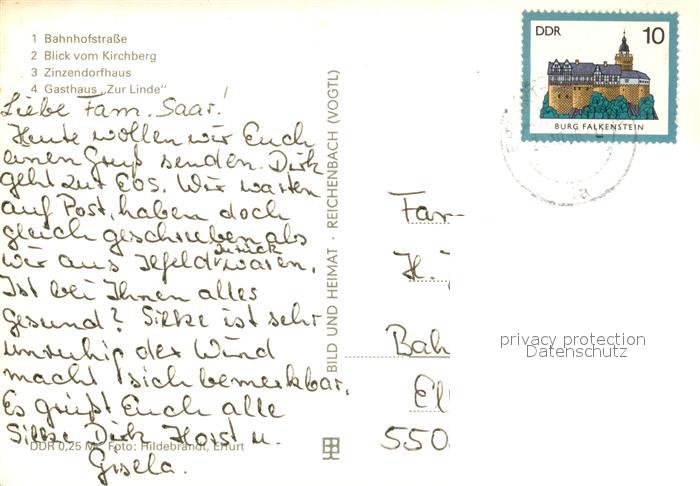 1 Bahnhofstraße
2 Blick vom Kirchberg
3 Zinzendorfhaus
4 Gasthaus „Zur Linde"
Liebe Fam. Saar!
Heute wollen wir Euch
einen Gruß senden. Dirk
geht zur EOS. Wir warten
auf Post, haben doch
gleich geschrieben als
wir aus Ilfeld zurück waren.
Ist bei Ihnen alles
gesund? Silke ist sehr
unruhig der Wind
macht sich bemerkbar.
Es grüßt Euch alle
Silke Dirk Horst u.
Gisela.
DDR 0,25 M Foto: Hildebrandt, Erfurt
BILD UND HEIMAT · REICHENBACH (VOGTL)
DDR 10
BURG FALKENSTEIN
Fam
H.
Bah
El
550
privacy protection
Datenschutz